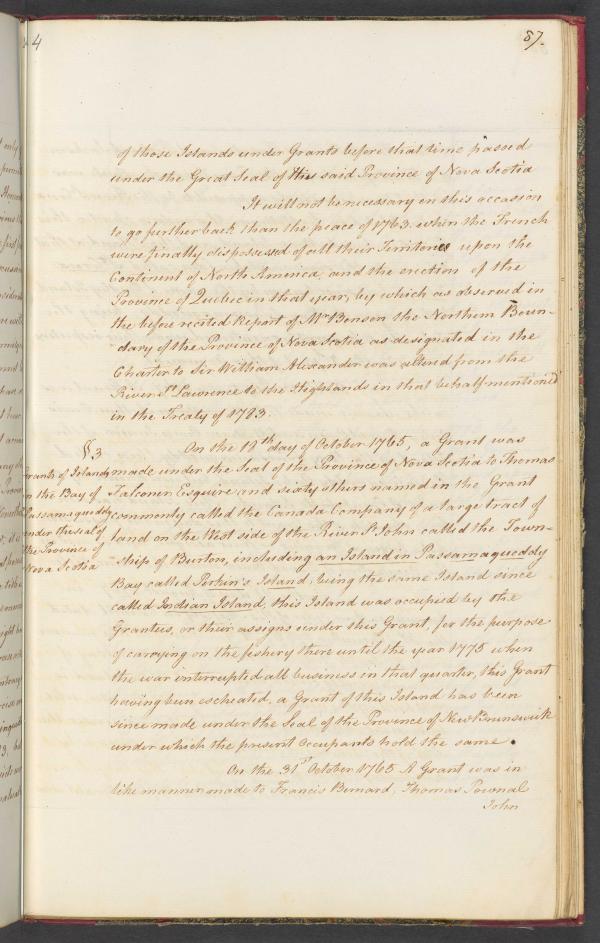 4
87.
of those Islands under Grants before that time passed
under the Great Seal of this said Province of Nova Scotia
It will not be necessary on this occasion
to go further back than the peace of 1763. when the French
were finally dispossessed of all their Territories upon the
Continent of North America, and the erection of the
Province of Quebec in that year, by which as observed in
the before recited Report of Mr Benson the Northern Boun-
dary of the Province of Nova Scotia as designated in the
Charter to Sir William Alexander was altered from the
River St Lawrence to the Highlands in that behalf mentioned
in the Treaty of 1783.
§3
Grants of Islands
in the Bay of
Passamaquoddy
under the seal of
the Province of
Nova Scotia
On the 18th day of October 1765, a Grant was
made under the Seal of the Province of Nova Scotia to Thomas
Falconer Esquire and sixty others named in the Grant
commonly called the Canada Company of a large tract of
land on the West side of the River St John called the Town-
ship of Burton, including an Island in Passamaquoddy
Bay called Perkin's Island, being the same Island since
called Indian Island, this Island was occupied by the
Grantees, or their assigns under this Grant, for the purpose
of carrying on the fishery there until the year 1775 when
the war interrupted all business in that quarter, this Grant
having been escheated, a Grant of this Island has been
since made under the Seal of the Province of New Brunswick
under which the present Occupants hold the same.
On the 31st October 1765 A Grant was in
like manner made to Francis Bernard, Thomas Pownal
John